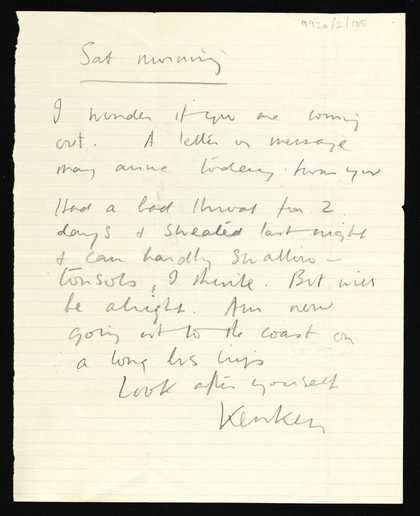 9920/2/105
Sat morning
I wonder if you are coming
out. A letter or message
may arrive today from you
Had a bad throat for 2
days & sweated last night
& can hardly swallow –
tonsols, I think. But will
be alright. Am now
going out to the coast on
a long bus trip
Look after yourself